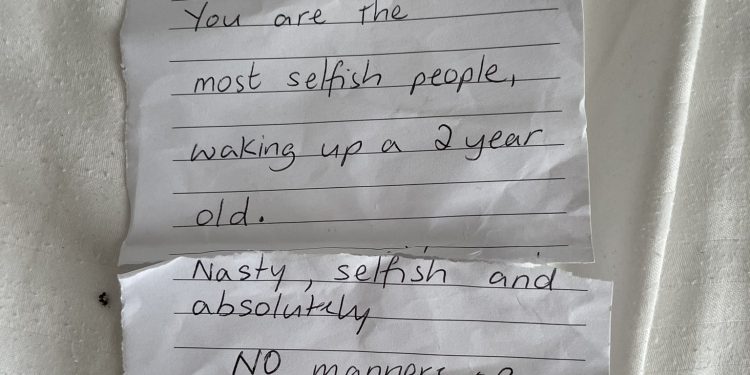 You are the
most selfish people,
waking up a 2 year
old.
Nasty, selfish and
absolutely
NO manners